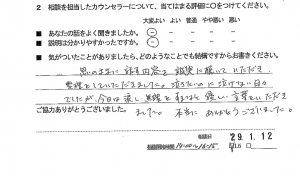 2 相談を担当したカウンセラーについて、当てはまる評価に○をつけてください。
大変よい よい 普通 やや悪い 悪い
■ あなたの話をよく聞きましたか。
■ 説明は分かりやすかったですか。
■ 気がついたことがありましたら、どのようなことでも結構ですからお書きください。
思いのままに話す内容を誠実に聴いていただき、
整理をしていただきました。泣きたいのに泣けない日々
でしたが、今日は涙し、無理と
優しい言葉をいただき
ました。本当にありがとうございました。
ご協力ありがとうございました。
相談日 29.1.12
相談時間 14:00~